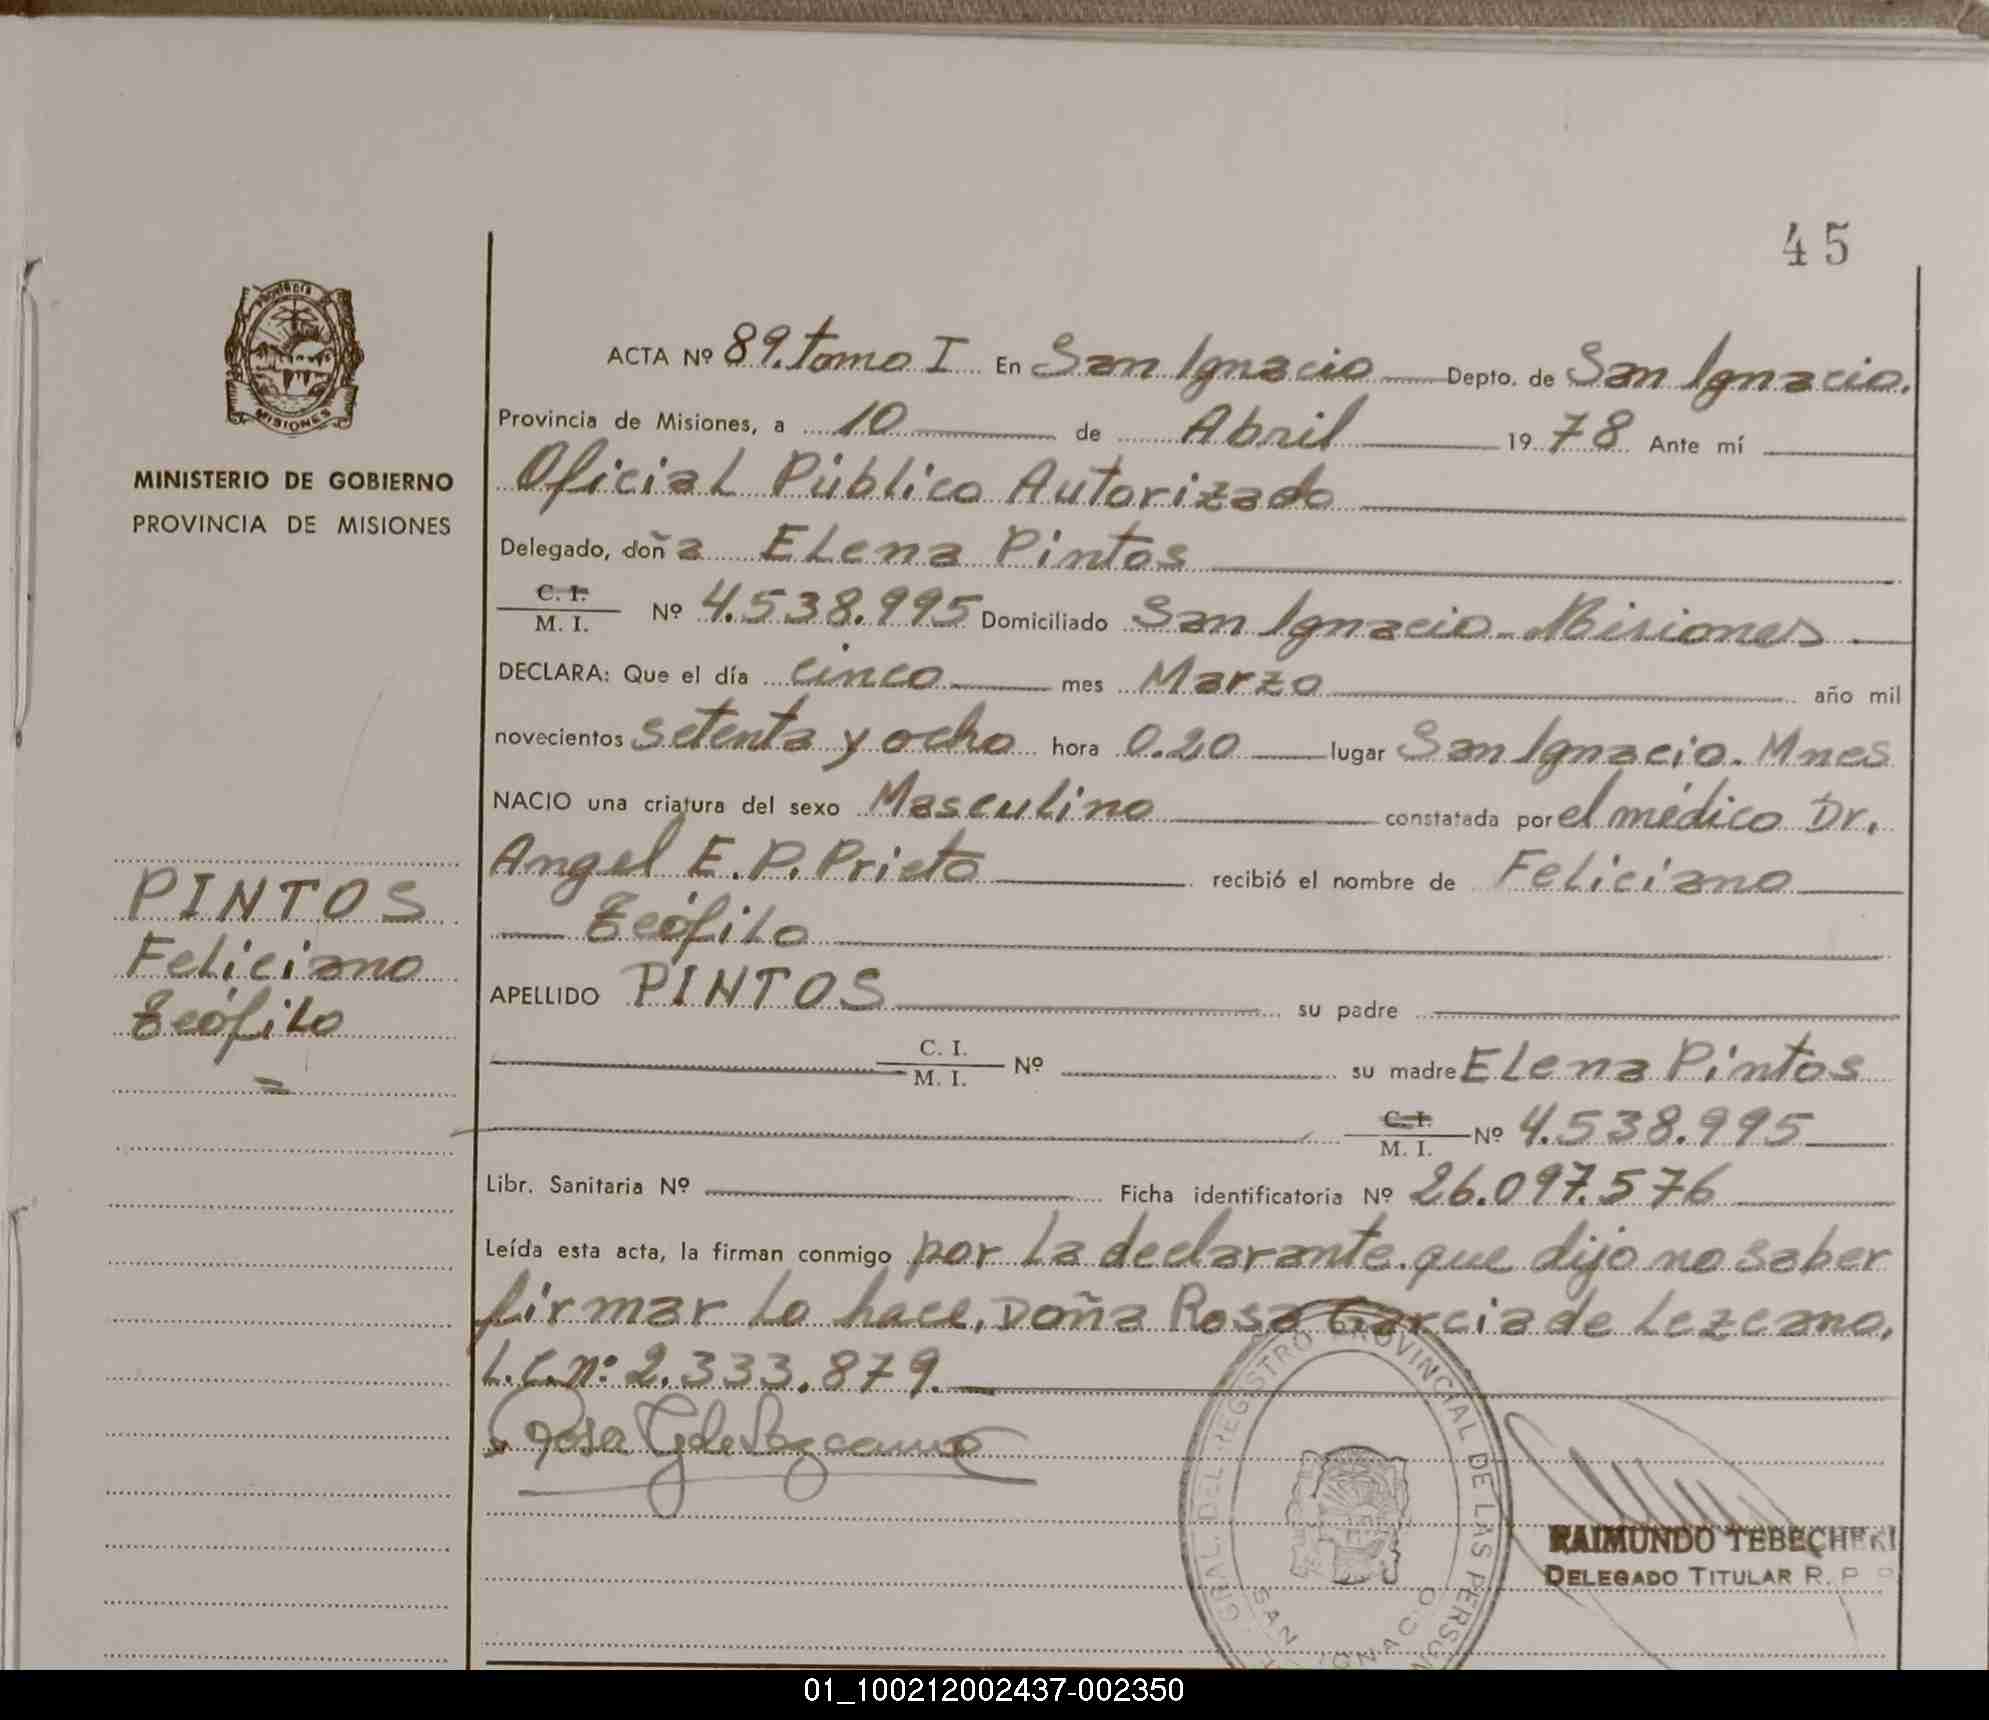 45
Provincia
MISIONES
MINISTERIO DE GOBIERNO
PROVINCIA DE MISIONES
PINTOS
Feliciano
Teófilo
ACTA Nº 89. tomo I En San Ignacio Depto. de San Ignacio.
Provincia de Misiones, a 10 de Abril 19 78 Ante mí
Oficial Público Autorizado
Delegado, doña Elena Pintos
C. I.
M. I. Nº 4.538.995 Domiciliado San Ignacio - Misiones
DECLARA: Que el día cinco mes Marzo año mil
novecientos setenta y ocho hora 0.20 lugar San Ignacio. Mnes
NACIO una criatura del sexo Masculino constatada por el médico Dr.
Angel E. P. Prieto recibió el nombre de Feliciano
Teófilo
APELLIDO PINTOS su padre
C. I.
M. I. Nº su madre Elena Pintos
C. I.
M. I. Nº 4.538.995
Libr. Sanitaria Nº Ficha identificatoria Nº 26.097.576
Leída esta acta, la firman conmigo por la declarante que dijo no saber
firmar lo hace, Doña Rosa Garcia de Lezcano,
L.C.nº: 2.333.879.
Rosa G de Lezcano
GRAL. DEL REGISTRO PROVINCIAL DE LAS PERSON
SAN IGNACIO
RAIMUNDO TEBECHERI
DELEGADO TITULAR R. P.
01_100212002437-002350